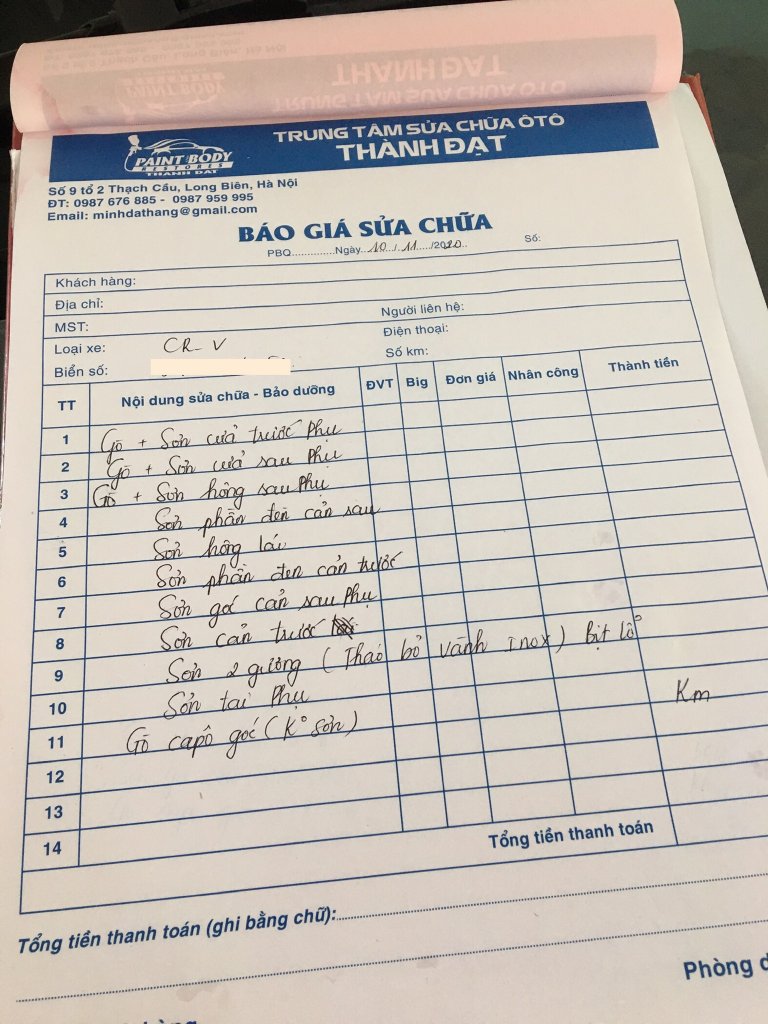 TRUNG TÂM SỬA CHỮA ÔTÔ
THÀNH ĐẠT
PAINT BODY
RESTORES
THANH DAT
Số 9 tổ 2 Thạch Cầu, Long Biên, Hà Nội
ĐT: 0987 676 885 - 0987 959 995
Email: minhdathang@gmail.com
BÁO GIÁ SỬA CHỮA
PBQ..............Ngày..10../.11...../2020 Số:
Khách hàng:
Địa chỉ:
MST: Người liên hệ:
Loại xe: CR-V Điện thoại:
Biển số: Số km:
TT Nội dung sửa chữa - Bảo dưỡng ĐVT Big Đơn giá Nhân công Thành tiền
1 Gò + Sơn cửa trước Phụ
2 Gò + Sơn cửa sau Phụ
3 Gò + Sơn hông sau Phụ
4 Sơn phần đen cản sau
5 Sơn hông lái
6 Sơn phần đen cản trước
7 Sơn góc cản sau Phụ
8 Sơn cản trước
9 Sơn 2 gương (Tháo bỏ vành Inox) bịt lỗ
10 Sơn tai Phụ Km
11 Gò capô góc (K° sơn)
12
13
14
Tổng tiền thanh toán
Tổng tiền thanh toán (ghi bằng chữ):
Phòng d
hàng